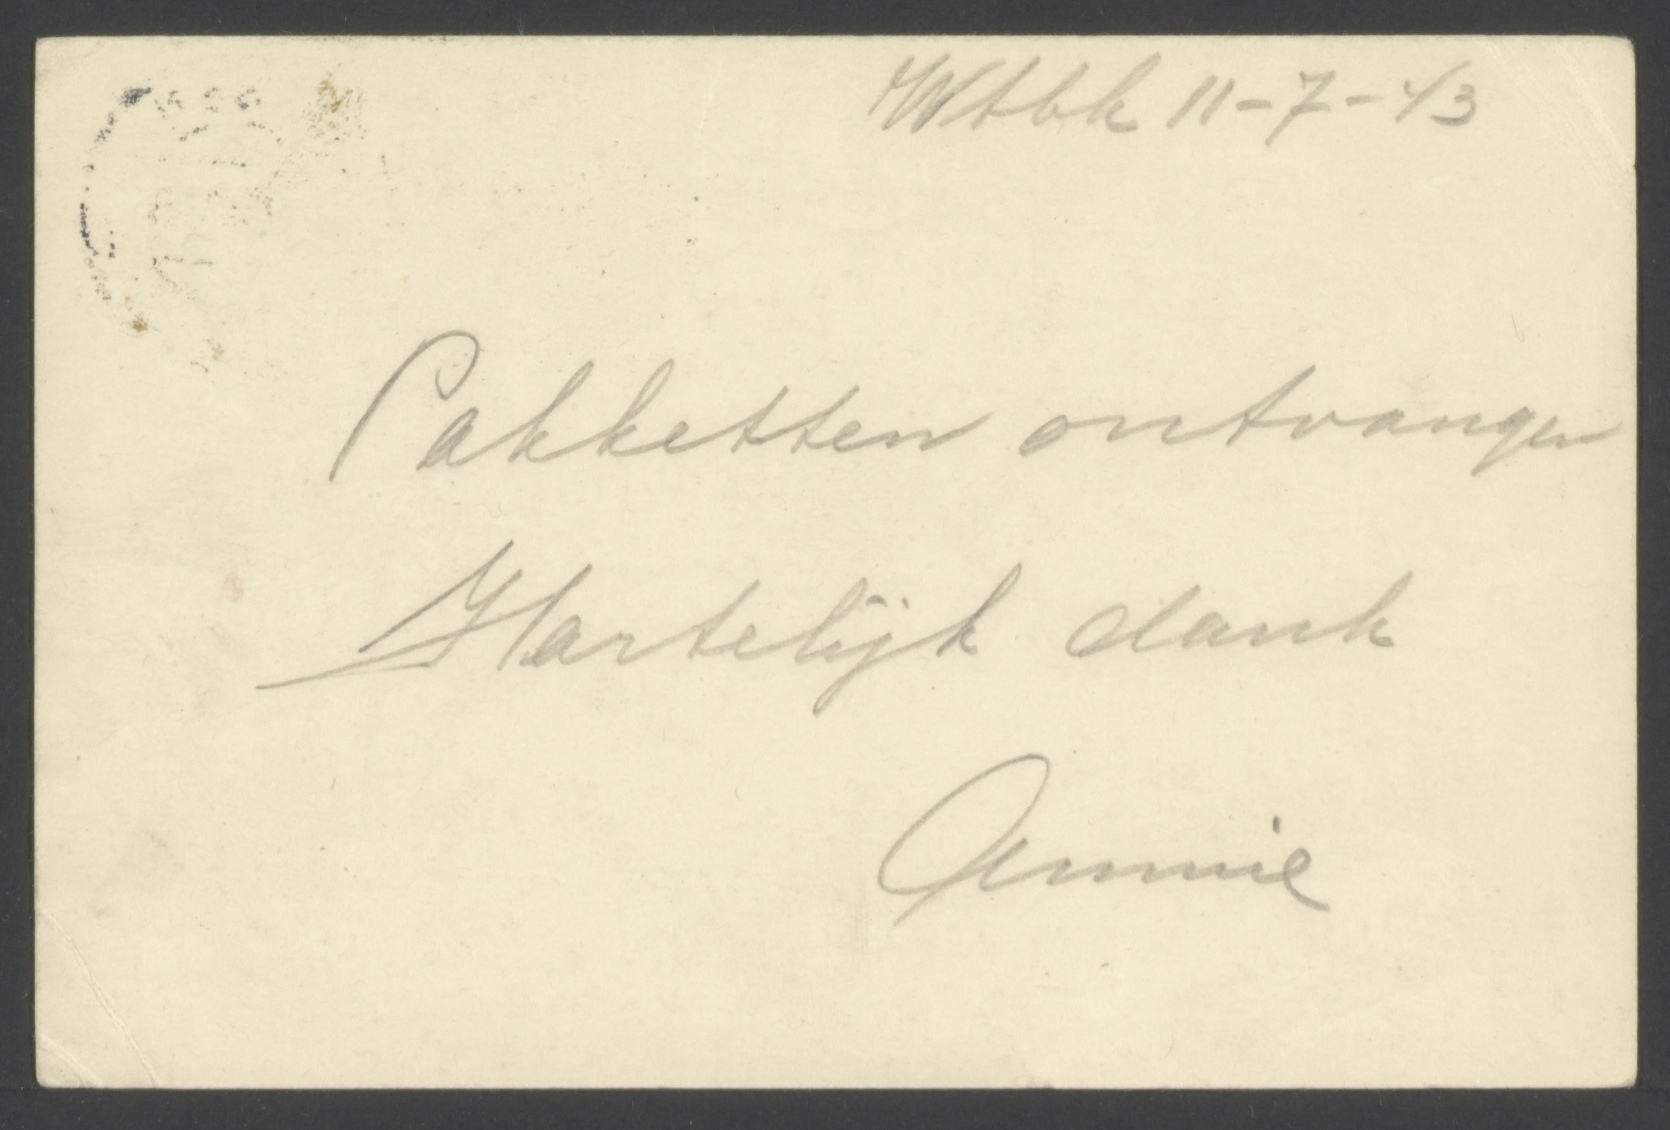 Wstbk 11-7-43
Pakketten ontvangen
Hartelijk dank
Annie